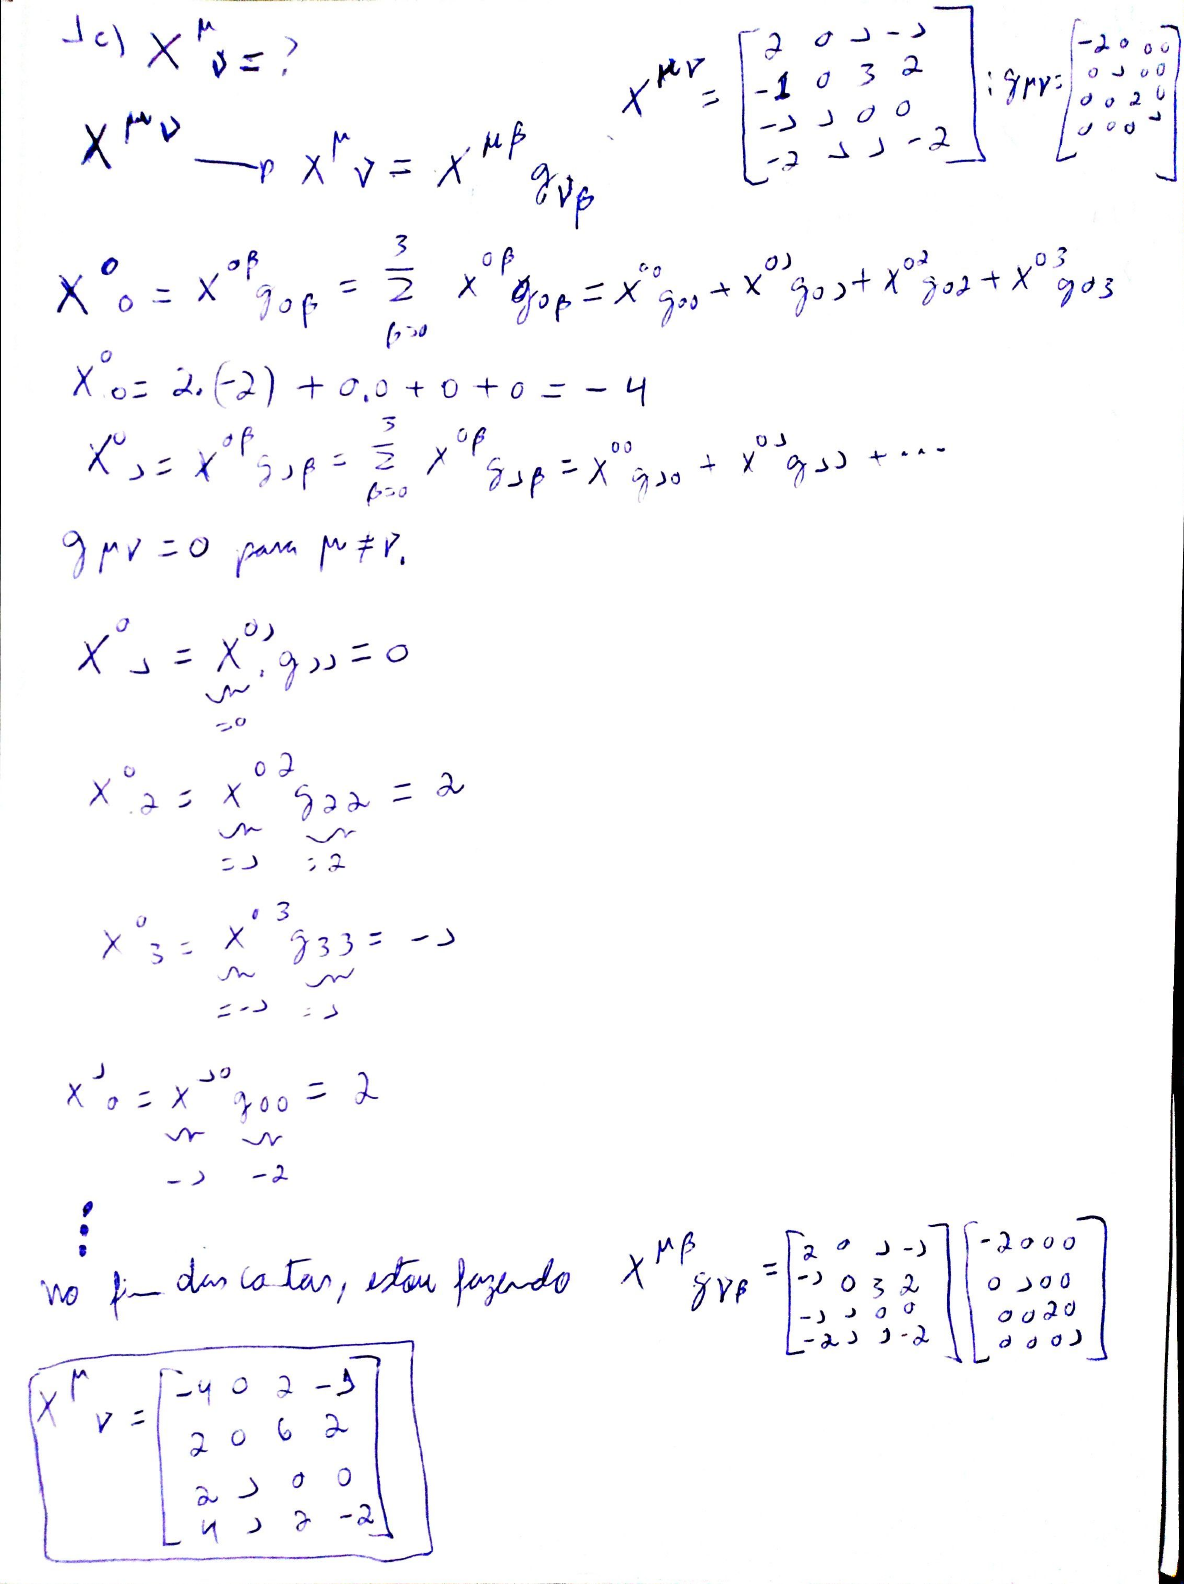 1c) X^μ_ν = ?
X^{μν} = [2 0 1 -1
-1 0 3 2
-1 1 0 0
-2 1 1 -2] ; g_{μν} = [-2 0 0 0
0 1 0 0
0 0 2 0
0 0 0 1]
X^{μν} → X^μ_ν = X^{μβ} g_{νβ}
X^0_0 = X^{0β} g_{0β} = Σ_{β=0}^{3} X^{0β} g_{0β} = X^{00} g_{00} + X^{01} g_{01} + X^{02} g_{02} + X^{03} g_{03}
X^0_0 = 2.(-2) + 0.0 + 0 + 0 = -4
X^0_1 = X^{0β} g_{1β} = Σ_{β=0}^{3} X^{0β} g_{1β} = X^{00} g_{10} + X^{01} g_{11} + ...
g_{μν} = 0 para μ ≠ ν.
X^0_1 = X^{01}. g_{11} = 0
=0
X^0_2 = X^{02} g_{22} = 2
=1 =2
X^0_3 = X^{03} g_{33} = -1
=-1 =1
X^1_0 = X^{10} g_{00} = 2
-1 -2
⋮
no fim das contas, estou fazendo X^{μβ} g_{νβ} = [2 0 1 -1
-1 0 3 2
-1 1 0 0
-2 1 1 -2] [-2 0 0 0
0 1 0 0
0 0 2 0
0 0 0 1]
X^μ_ν = [-4 0 2 -1
2 0 6 2
2 1 0 0
4 1 2 -2]